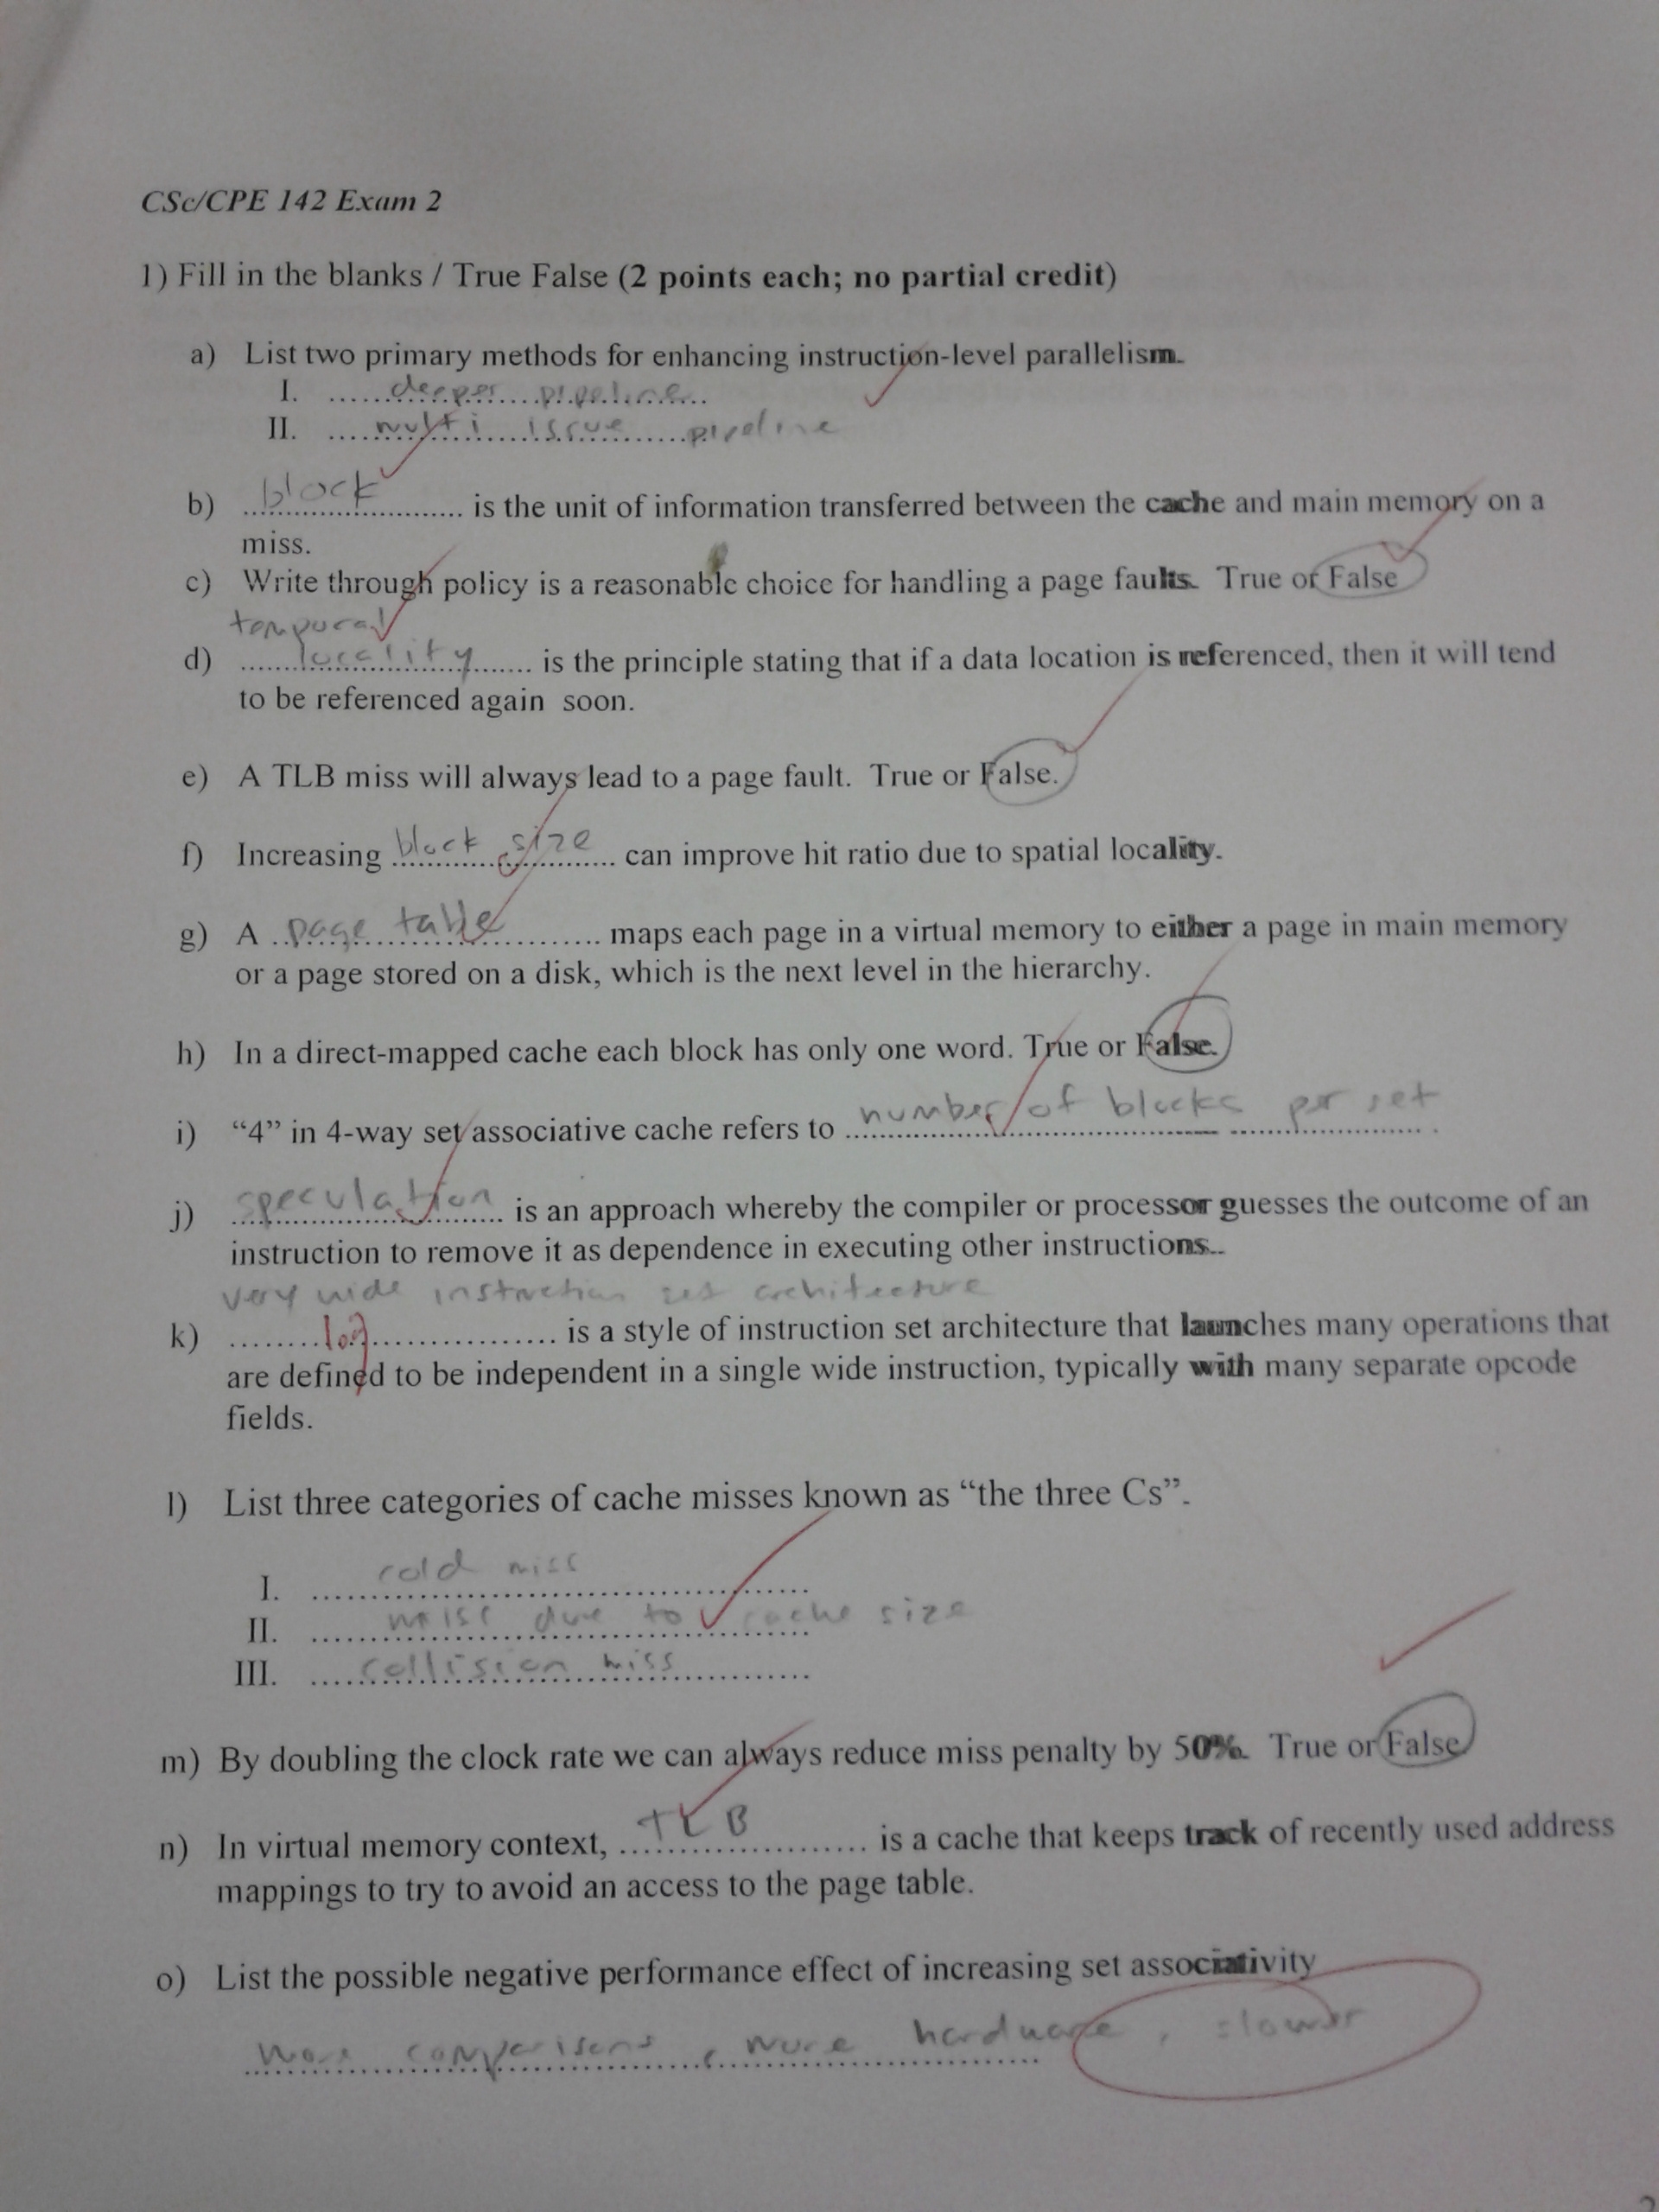 CSc/CPE 142 Exam 2
1) Fill in the blanks / True False (2 points each; no partial credit)
a) List two primary methods for enhancing instruction-level parallelism.
I. deeper pipeline
II. multi issue pipeline
b) block is the unit of information transferred between the cache and main memory on a
miss.
c) Write through policy is a reasonable choice for handling a page faults. True or False
temporal
d) locality is the principle stating that if a data location is referenced, then it will tend
to be referenced again soon.
e) A TLB miss will always lead to a page fault. True or False.
f) Increasing block size can improve hit ratio due to spatial locality.
g) A page table maps each page in a virtual memory to either a page in main memory
or a page stored on a disk, which is the next level in the hierarchy.
h) In a direct-mapped cache each block has only one word. True or False.
i) “4” in 4-way set associative cache refers to number of blocks per set.
j) speculation is an approach whereby the compiler or processor guesses the outcome of an
instruction to remove it as dependence in executing other instructions..
very wide instruction set architecture
k) long is a style of instruction set architecture that launches many operations that
are defined to be independent in a single wide instruction, typically with many separate opcode
fields.
l) List three categories of cache misses known as “the three Cs”.
I. cold miss
II. miss due to cache size
III. collision miss
m) By doubling the clock rate we can always reduce miss penalty by 50%. True or False
n) In virtual memory context, TLB is a cache that keeps track of recently used address
mappings to try to avoid an access to the page table.
o) List the possible negative performance effect of increasing set associativity
more comparisons, more hardware, slower